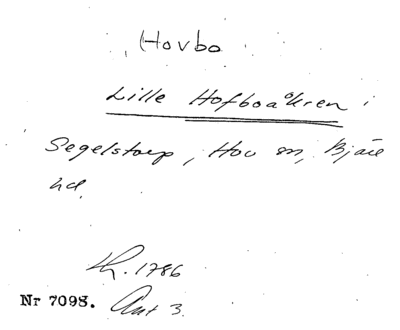 Hovbo
Lille Hofboaåkren i
Segelstorp, Hov sn, Bjäre
hd.
Lh. 1786
Nr 7098. Ant 3.